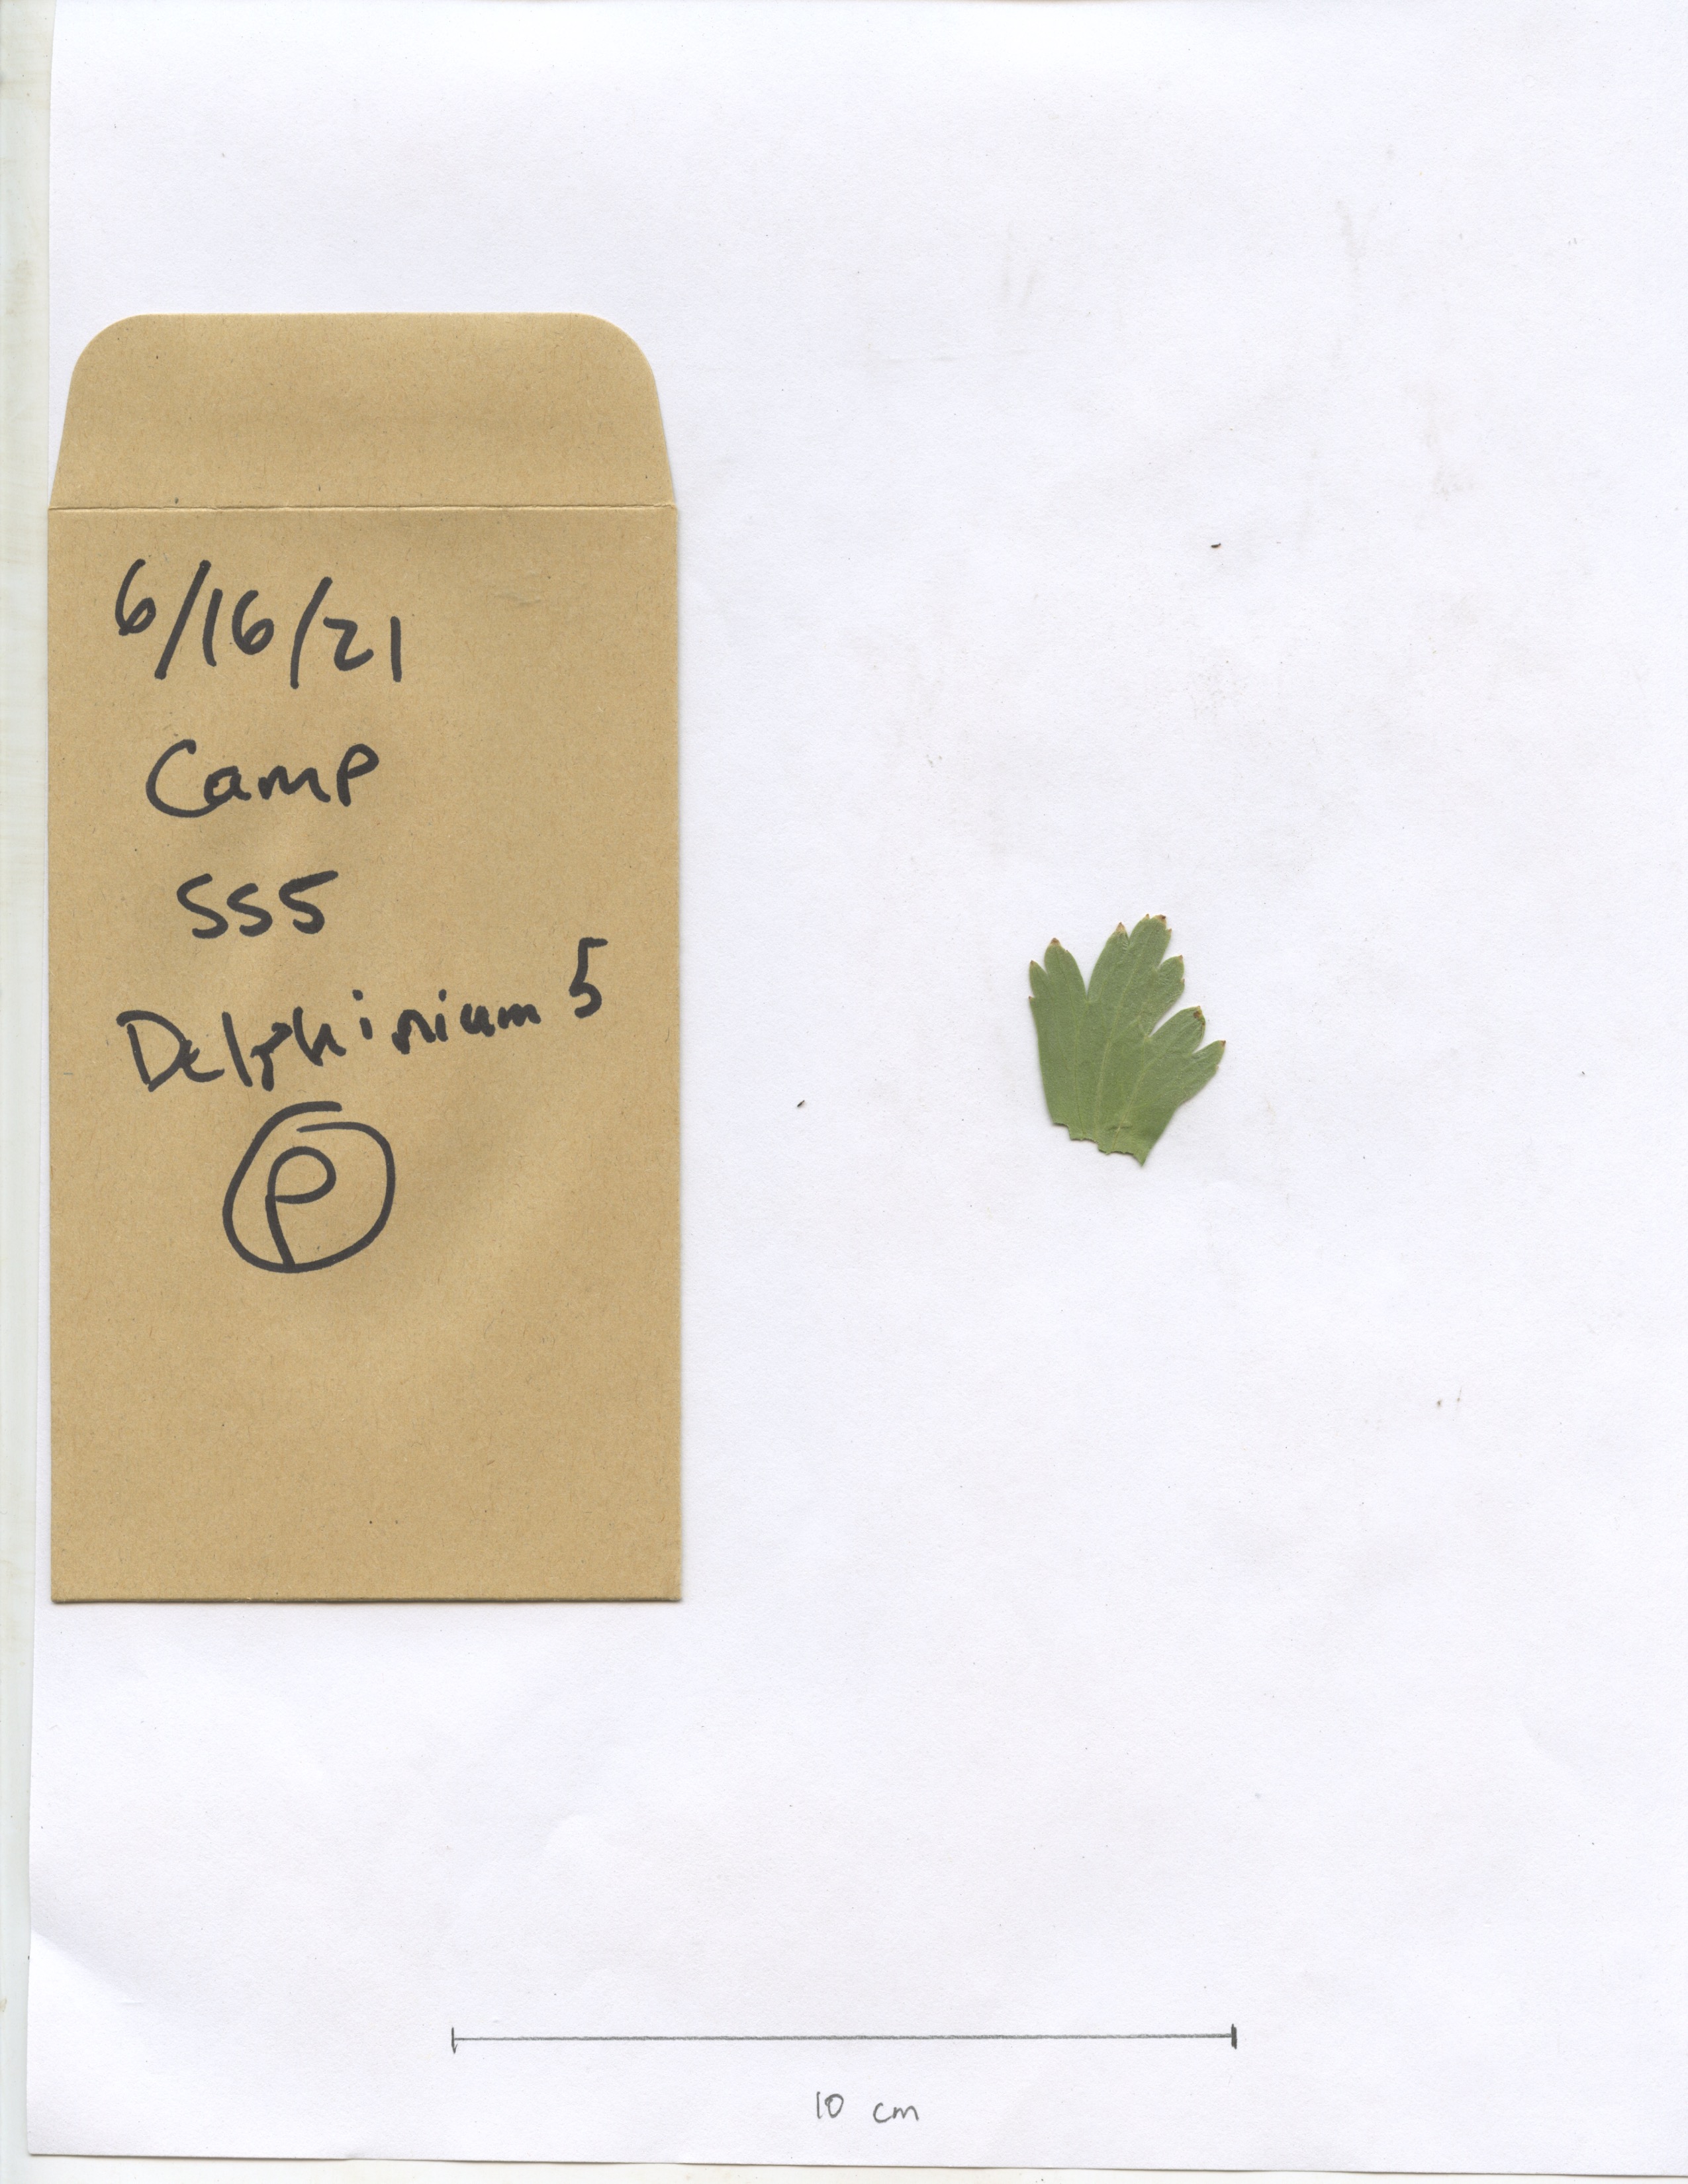 6/16/21
Camp
SS5
Delphinium 5
P
10 cm